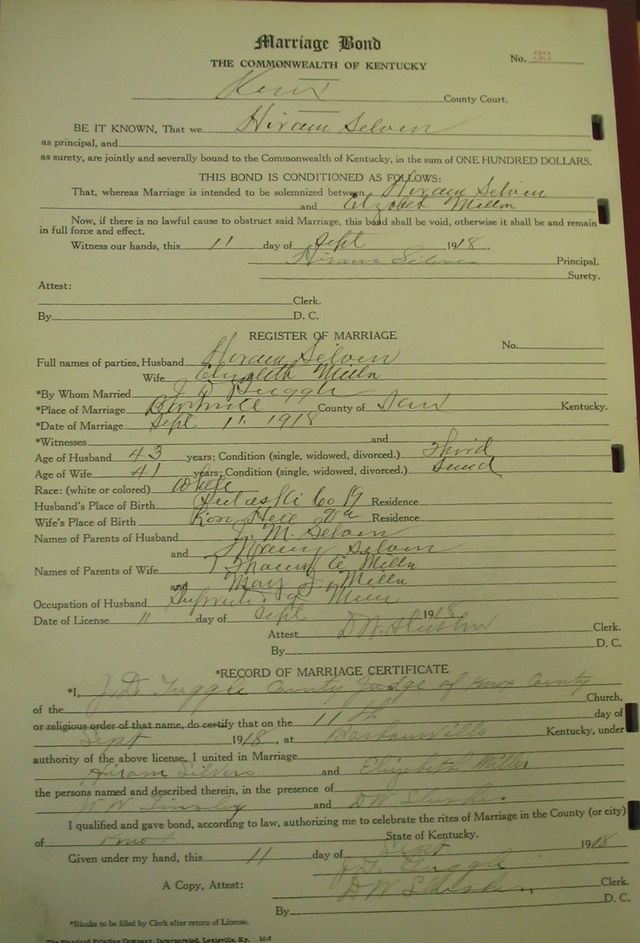 Marriage Bond
THE COMMONWEALTH OF KENTUCKY
No. 33
Knox County Court.
BE IT KNOWN, That we Hiram Selvin
as principal, and
as surety, are jointly and severally bound to the Commonwealth of Kentucky, in the sum of ONE HUNDRED DOLLARS.
THIS BOND IS CONDITIONED AS FOLLOWS:
That, whereas Marriage is intended to be solemnized between Hiram Selvin
and Elzabet Miller
Now, if there is no lawful cause to obstruct said Marriage, this bond shall be void, otherwise it shall be and remain
in full force and effect.
Witness our hands, this 11 day of Sept 1918.
Hiram Selvin Principal.
Surety.
Attest:
Clerk.
By D. C.
REGISTER OF MARRIAGE
No.
Full names of parties, Husband Hiram Selvin
Wife Elizabeth Miller
*By Whom Married J D Tuggle
*Place of Marriage County of Knox Kentucky.
*Date of Marriage Sept 11 1918
*Witnesses and
Age of Husband 43 years; Condition (single, widowed, divorced.) Third
Age of Wife 41 years; Condition (single, widowed, divorced.)
Race: (white or colored) White
Husband's Place of Birth Pulaski Co Ky Residence
Wife's Place of Birth Va Residence
Names of Parents of Husband M. Selvin
and Selvin
Names of Parents of Wife Miller
and Mary J. Miller
Occupation of Husband
Date of License 11 day of Sept 1918
Attest D W Slusher Clerk.
By D. C.
*RECORD OF MARRIAGE CERTIFICATE
*I, J. D. Tuggle County Judge of Knox County
of the Church,
or religious order of that name, do certify that on the 11th day of
Sept 1918, at Barbourville Kentucky, under
authority of the above license, I united in Marriage
Hiram Silvers and Elizabeth Miller
the persons named and described therein, in the presence of
W W Tinsley and D W Slusher
I qualified and gave bond, according to law, authorizing me to celebrate the rites of Marriage in the County (or city)
of Knox State of Kentucky.
Given under my hand, this 11 day of Sept 1918
J. D. Tuggle
A Copy, Attest: D W Slusher, Clerk.
By D. C.
*Blanks to be filled by Clerk after return of License.
The Standard Printing Company, Incorporated, Louisville, Ky. M-7